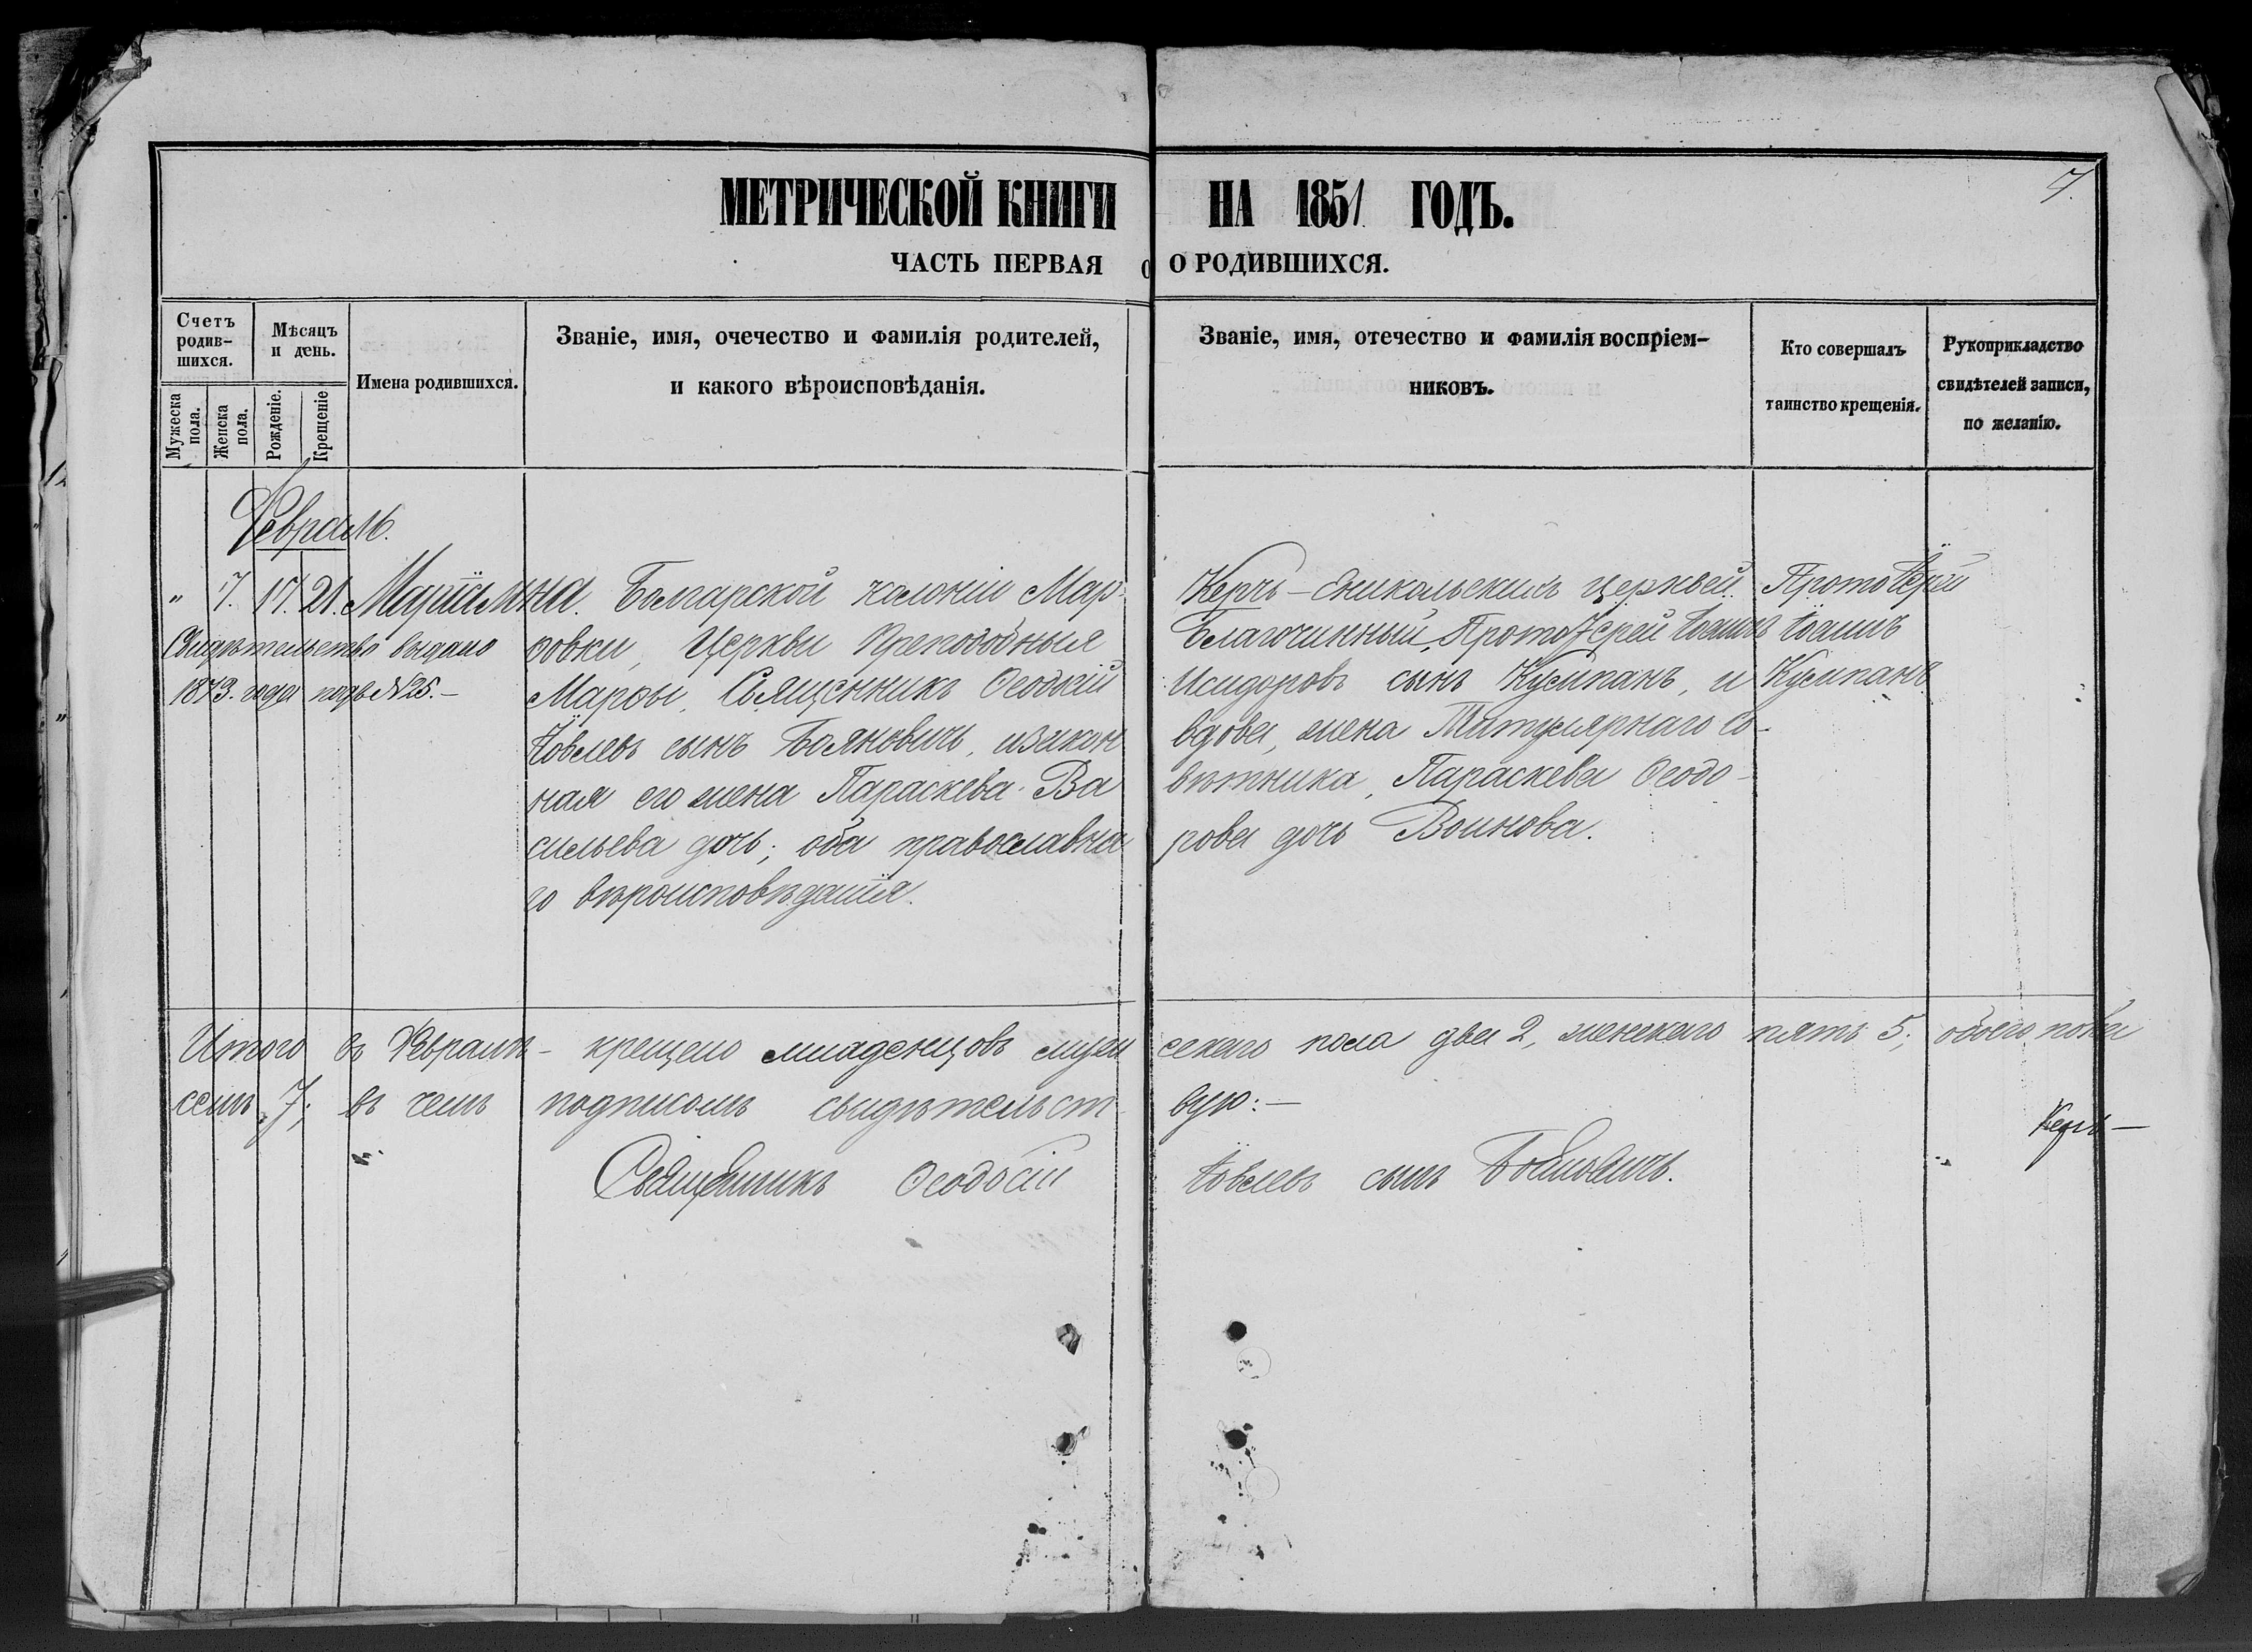 МЕТРИЧЕСКОЙ КНИГИ НА 1851 ГОДЪ.
7.
ЧАСТЬ ПЕРВАЯ О РОДИВШИХСЯ.
Счетъ родив-шихся.
Мужеска пола.
Женска пола.
Мѣсяцъ и день.
Рожденіе.
Крещеніе
Имена родившихся.
Званіе, имя, очечество и фамилія родителей,
и какого вѣроисповѣданія.
Званіе, имя, отечество и фамилія воспріем-
никовъ.
Кто совершалъ
таинство крещенія.
Рукоприкладство
свидѣтелей записи,
по желанію.
Февраль.
„ 7. 17. 21.
Свидѣтельство выдано
1873. года подъ №25.-
Болгарской колоніи Мар-
ѳовки, Церкви Преподобныя
Марѳы, Священникъ Ѳеодосій
Іовлевъ сынъ Бояновичъ, и закон
ная его жена Параскева Ва
сильева дочь; оба православна
го вѣроисповѣданія.
Керчь-Эникольскихъ церквей
Благочинный, ПротоІерей Іоаннъ
Исидоровъ сынъ Кумпанъ, и
вдова, жена Титулярнаго Со-
вѣтника, Параскева Ѳеодо-
рова дочь Воинова.
ПротоІерей
Іоаннъ
Кумпанъ
Итого въ Февралѣ - крещено младенцовъ муже скаго пола два 2, женскаго пять 5; обоего пола
семь 7; въ чемъ подписомъ свидѣтельст вую:—
Священникъ Ѳеодосій Іовлевъ сынъ Бояновичъ.